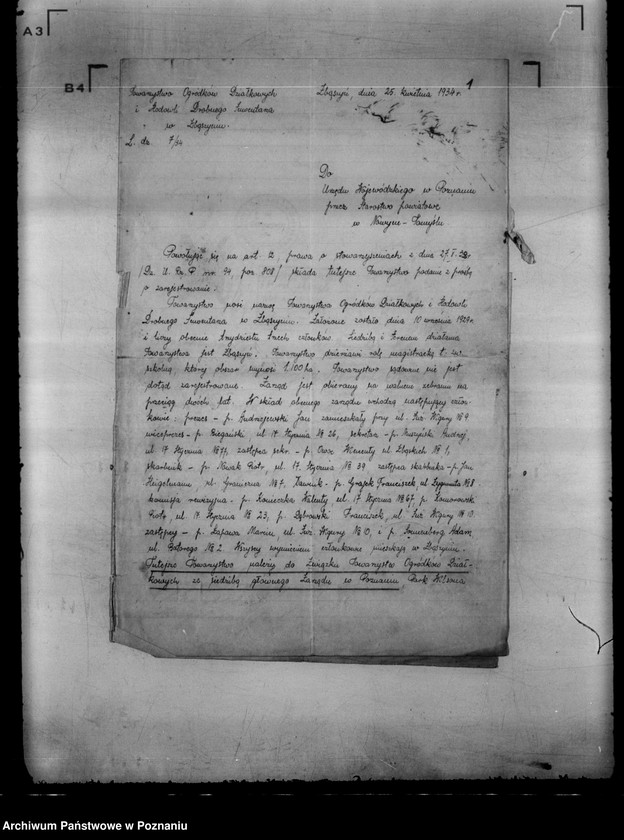 A3
B4
1
Towarzystwo Ogródków Działkowych
i Hodowli Drobnego Inwentarza
w Zbąszyniu.
L. dz. 7/34
Zbąszyń, dnia 26. kwietnia 1934 r.
Do
Urzędu Wojewódzkiego w Poznaniu
przez Starostwo powiatowe
w Nowym-Tomyślu
Powołując się na art. 2, prawa o stowarzyszeniach z dnia 27.
Dz. U. Rz. P. nr. 94, poz 808/ składa tutejsze Towarzystwo podanie z prośbą
o zarejestrowanie.
Towarzystwo nosi nazwę Towarzystwo Ogródków Działkowych i Hodowli
Drobnego Inwentarza w Zbąszyniu. Założone zostało dnia 10 września 1929 r.
i liczy obecnie trzydziestu trzech członków. Siedzibą i terenem działania
Towarzystwa jest Zbąszyń. Towarzystwo dzierżawi rolę magistracką t. zw.
szkolną, której obszar wynosi 1.100 ha. Towarzystwo sądownie nie jest
dotąd zarejestrowane. Zarząd jest obierany na walnem zebraniu na
przeciąg dwóch lat. W skład obecnego zarządu wchodzą następujący człon-
kowie: prezes - p. Andrzejewski Jan zamieszkały przy ul. Św. Wigury № 9
wiceprezes - p. Biegański ul. 17 Stycznia № 26, sekretarz - p. Muszyński Andrzej,
ul. 17 Stycznia № 77, zastępca sekr. - p. Wincenty ul. № 1,
skarbnik - p. Nowak Piotr, ul. 17. Stycznia № 39 zastępca skarbnika - p. Jan
ul. Graniczna № 7. Ławnik - p. Grajek Franciszek, ul Zygmunta № 8
komisja rewizyjna - p. Walenty ul. 17 Stycznia № 67, p. Komorowski
Piotr, ul. 17 Stycznia № 23, p. Dąbrowski Franciszek, ul. Św. Wigury № 13
zastępcy - p. Marcin ul. Św. Wigury № 10, i p. Adam,
ul. Batorego № 2. Wszyscy wymienieni członkowie mieszkają w Zbąszyniu.
Tutejsze Towarzystwo należy do Związku Towarzystw Ogródków Dział-
kowych ze siedzibą głównego Zarządu w Poznaniu Park Wilsona
Archiwum Państwowe w Poznaniu